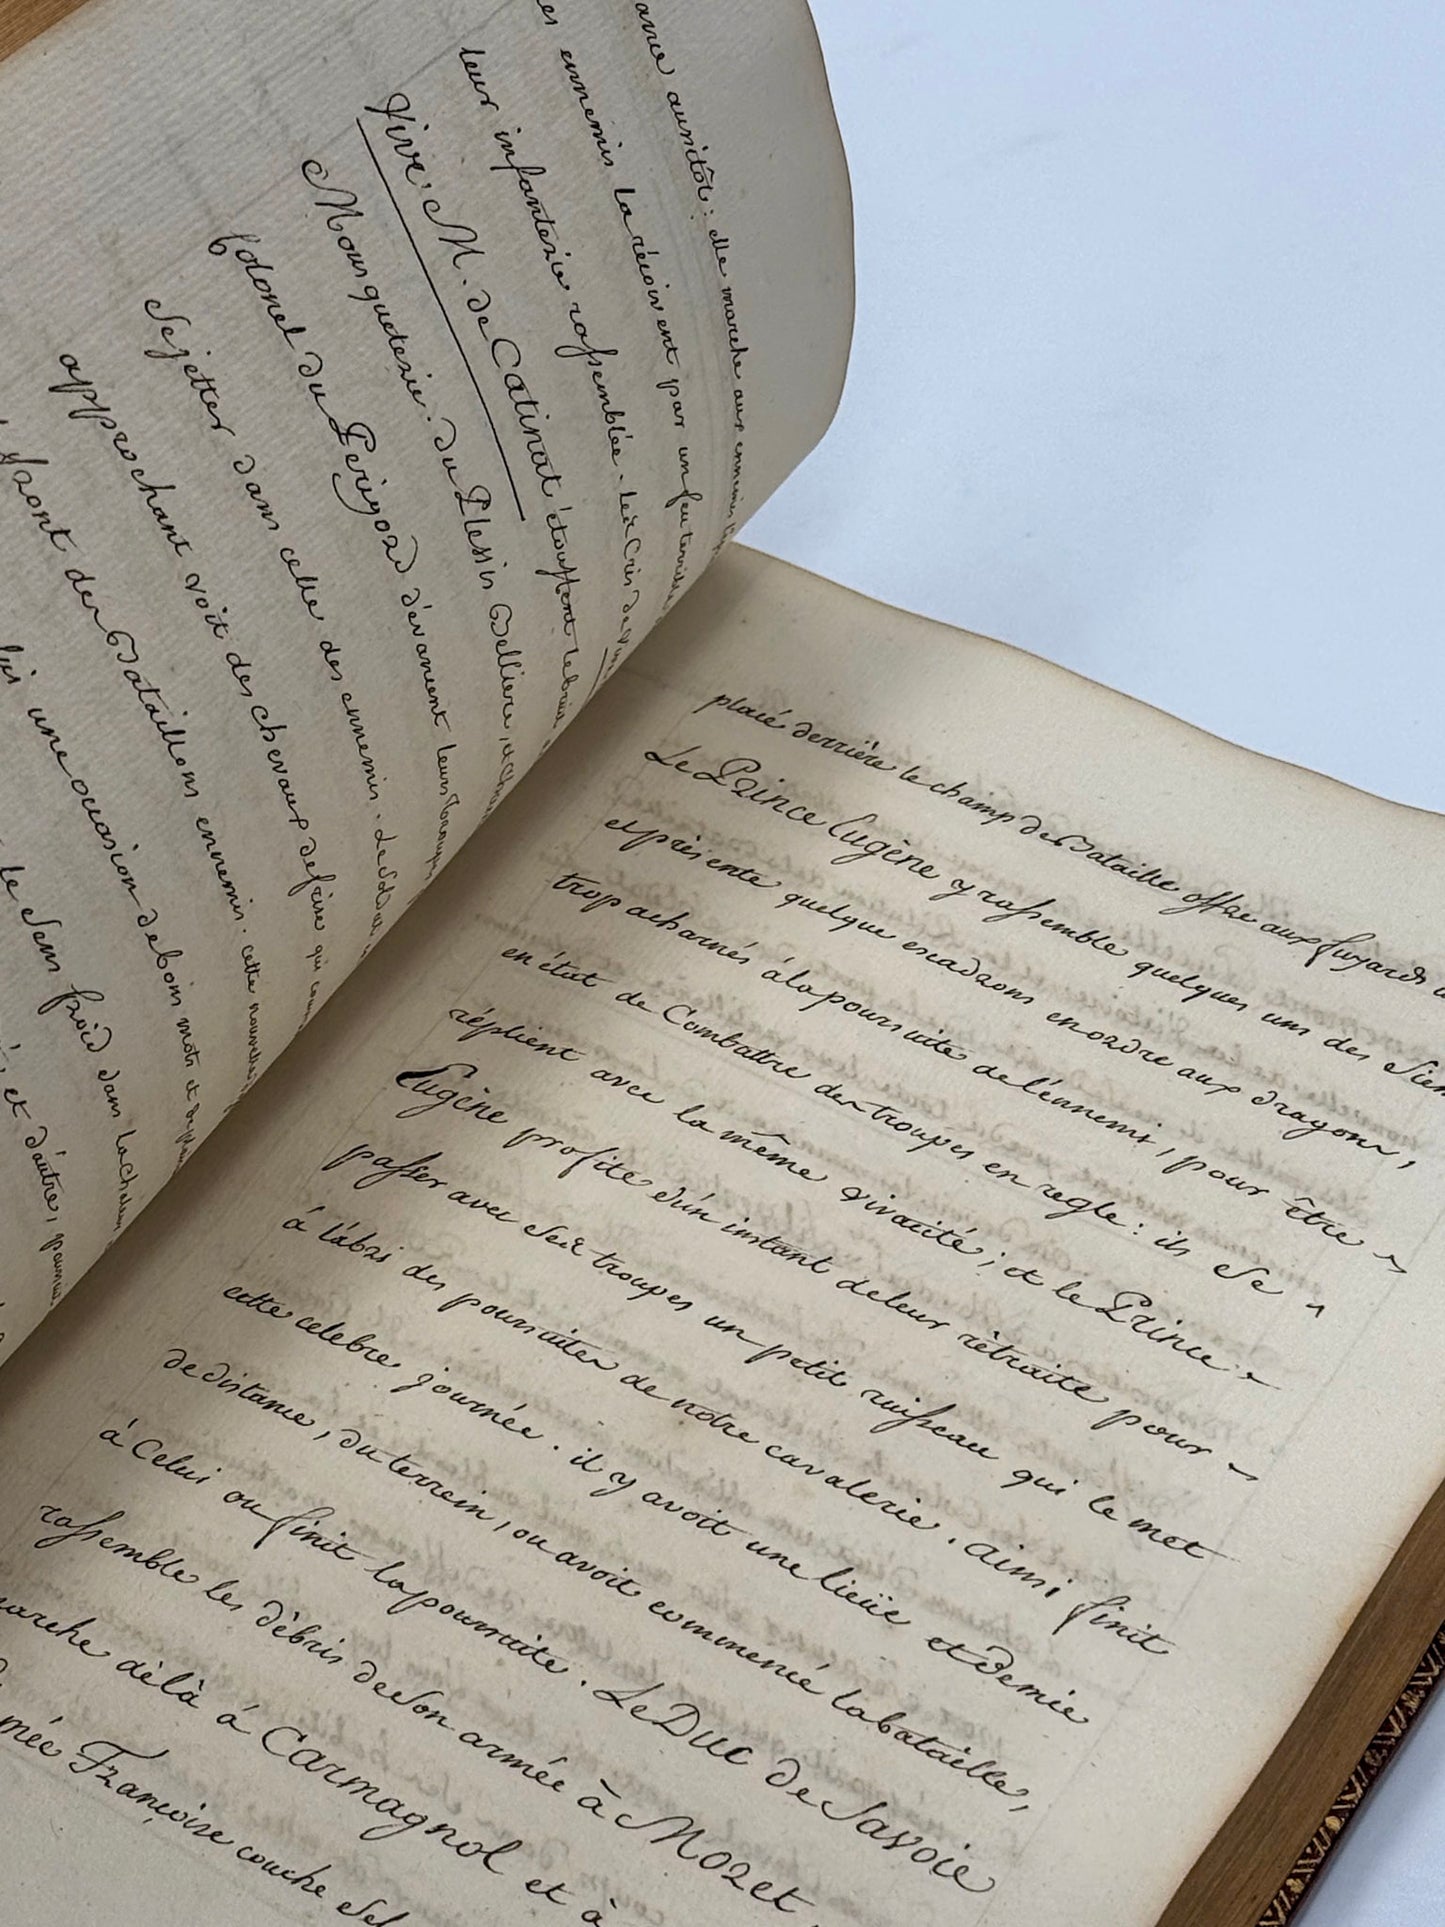 ance aussitôt: elle marche aux ennemis
les ennemis la récoivent par un feu terrible
leur infanterie rassemblée. les Cris de Vive
Vive M. de Catinat étouffent le bruit
Mousqueterie. du Plessis Belliere,
Colonel du Perigord dévancent leurs troupes
Se jetter dans celle des ennemis. Le Soldat
approchant voit des chevaux de frise qui
front des Bataillons ennemis. cette nouvelle
une occasion de bons mots et de
le Sens froid dans la chaleur
et d'autre,
placé derrière le champ de Bataille offre aux fuyards
Le Prince Eugène y rassemble quelques uns des Siens
et présente quelque escadrons en ordre aux dragons,
trop acharnés à la poursuite de l'énnemi, pour être
en état de Combattre des troupes en regle: ils se
réplient avec la même vivacité; et le Prince
Eugène profite d'un instant de leur rètraite pour
passer avec Ses troupes un petit ruisseau qui le met
à l'abri des poursuites de nôtre cavalerie. Ainsi finit
cette celebre journée. il y avoit une lieüe et demie
de distance, du terrein, ou avoit commencé la bataille,
à Celui ou finit la poursuite. Le Duc de Savoie
rassemble les dèbris de Son armée à Moret,
marche dèlà à Carmagnol et à
mée Françoise couche